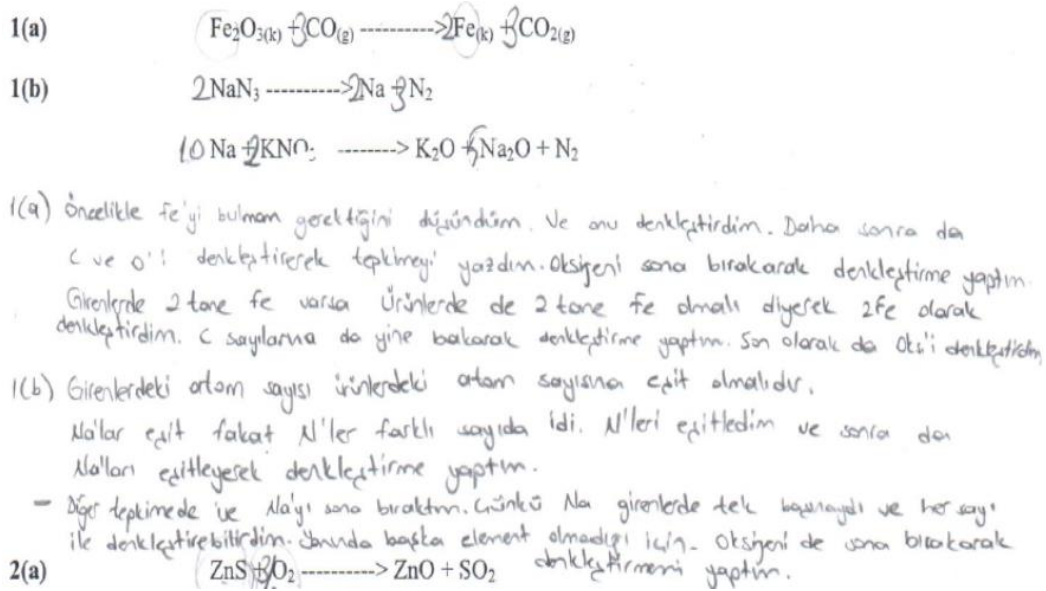 1(a) Fe₂O₃(k) + 3CO(g) ----------->2Fe(k) + 3CO₂(g)
1(b) 2NaN₃ ---------->2Na + 3N₂
10 Na + 2KNO₃ --------> K₂O + 5Na₂O + N₂
1(a) Öncelikle Fe'yi bulmam gerektiğini düşündüm. Ve onu denkleştirdim. Daha sonra da
C ve O'i denkleştirerek tepkimeyi yazdım. Oksijeni sona bırakarak denkleştirme yaptım.
Girenlerde 2 tane Fe varsa Ürünlerde de 2 tane Fe olmalı diyerek 2Fe olarak
denkleştirdim. C sayılarına da yine bakarak denkleştirme yaptım. Son olarak da Oks'i denkleştirdim
1(b) Girenlerdeki atom sayısı ürünlerdeki atom sayısına eşit olmalıdır.
Na'lar eşit fakat N'ler farklı sayıda idi. N'leri eşitledim ve sonra da
Na'ları eşitleyerek denkleştirme yaptım.
- Diğer tepkimede ise Na'yı sona bıraktım. Çünkü Na girenlerde tek başınaydı ve her sayı
ile denkleştirebilirdim. Yanında başka element olmadığı için. Oksijeni de sona bırakarak
denkleştirmemi yaptım.
2(a) ZnS + 3O₂ ----------> ZnO + SO₂